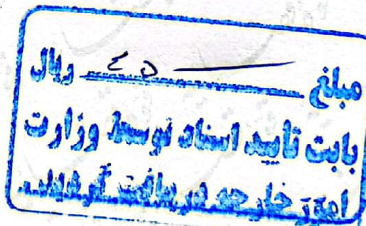 مبلغ ۴۵ ریال
بابت تأیید اسناد توسط وزارت
امور خارجه دریافت گردید.